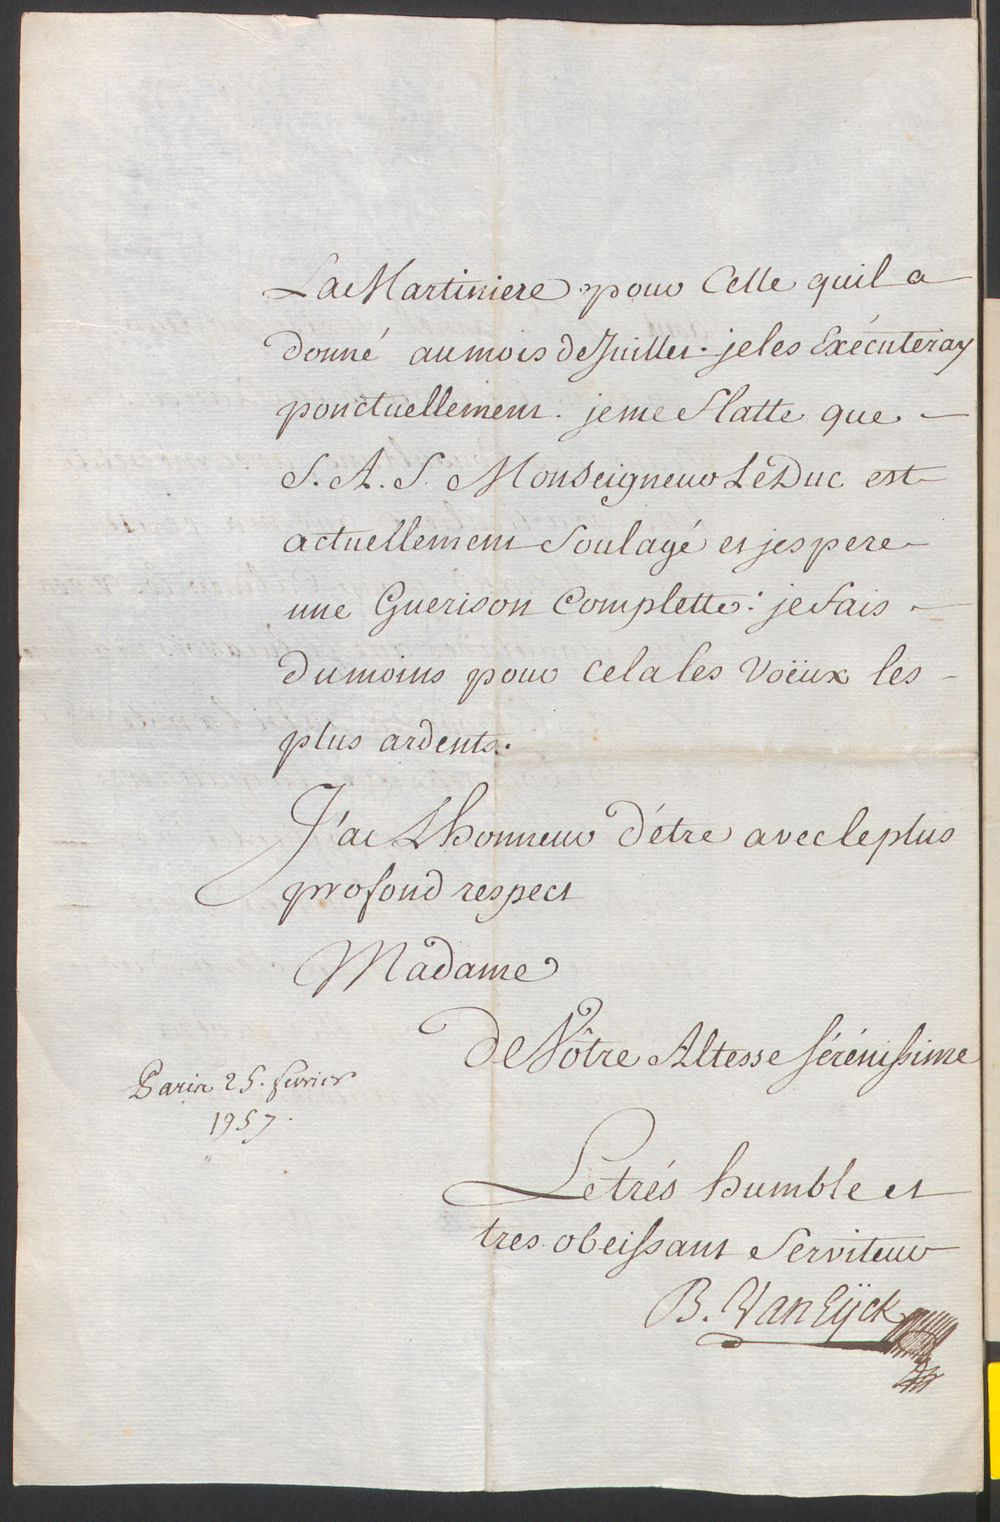 La Martiniere pour Celle quil a
donné au mois de Juillet. je les Exécuteray
ponctuellement. je me flatte que
S. A. S. Monseigneur Le Duc est
actuellement Soulagé et jespere
une Guerison Complette: je fais
du moins pour cela les Voëux les
plus ardents.
J'ai L'honneur d'étre avec le plus
profond respect
Madame
De Vôtre Altesse Sérénissime
Paris 25. fevrier
1757.
Le trés humble et
tres obeissant Serviteur
B. Van Eÿck